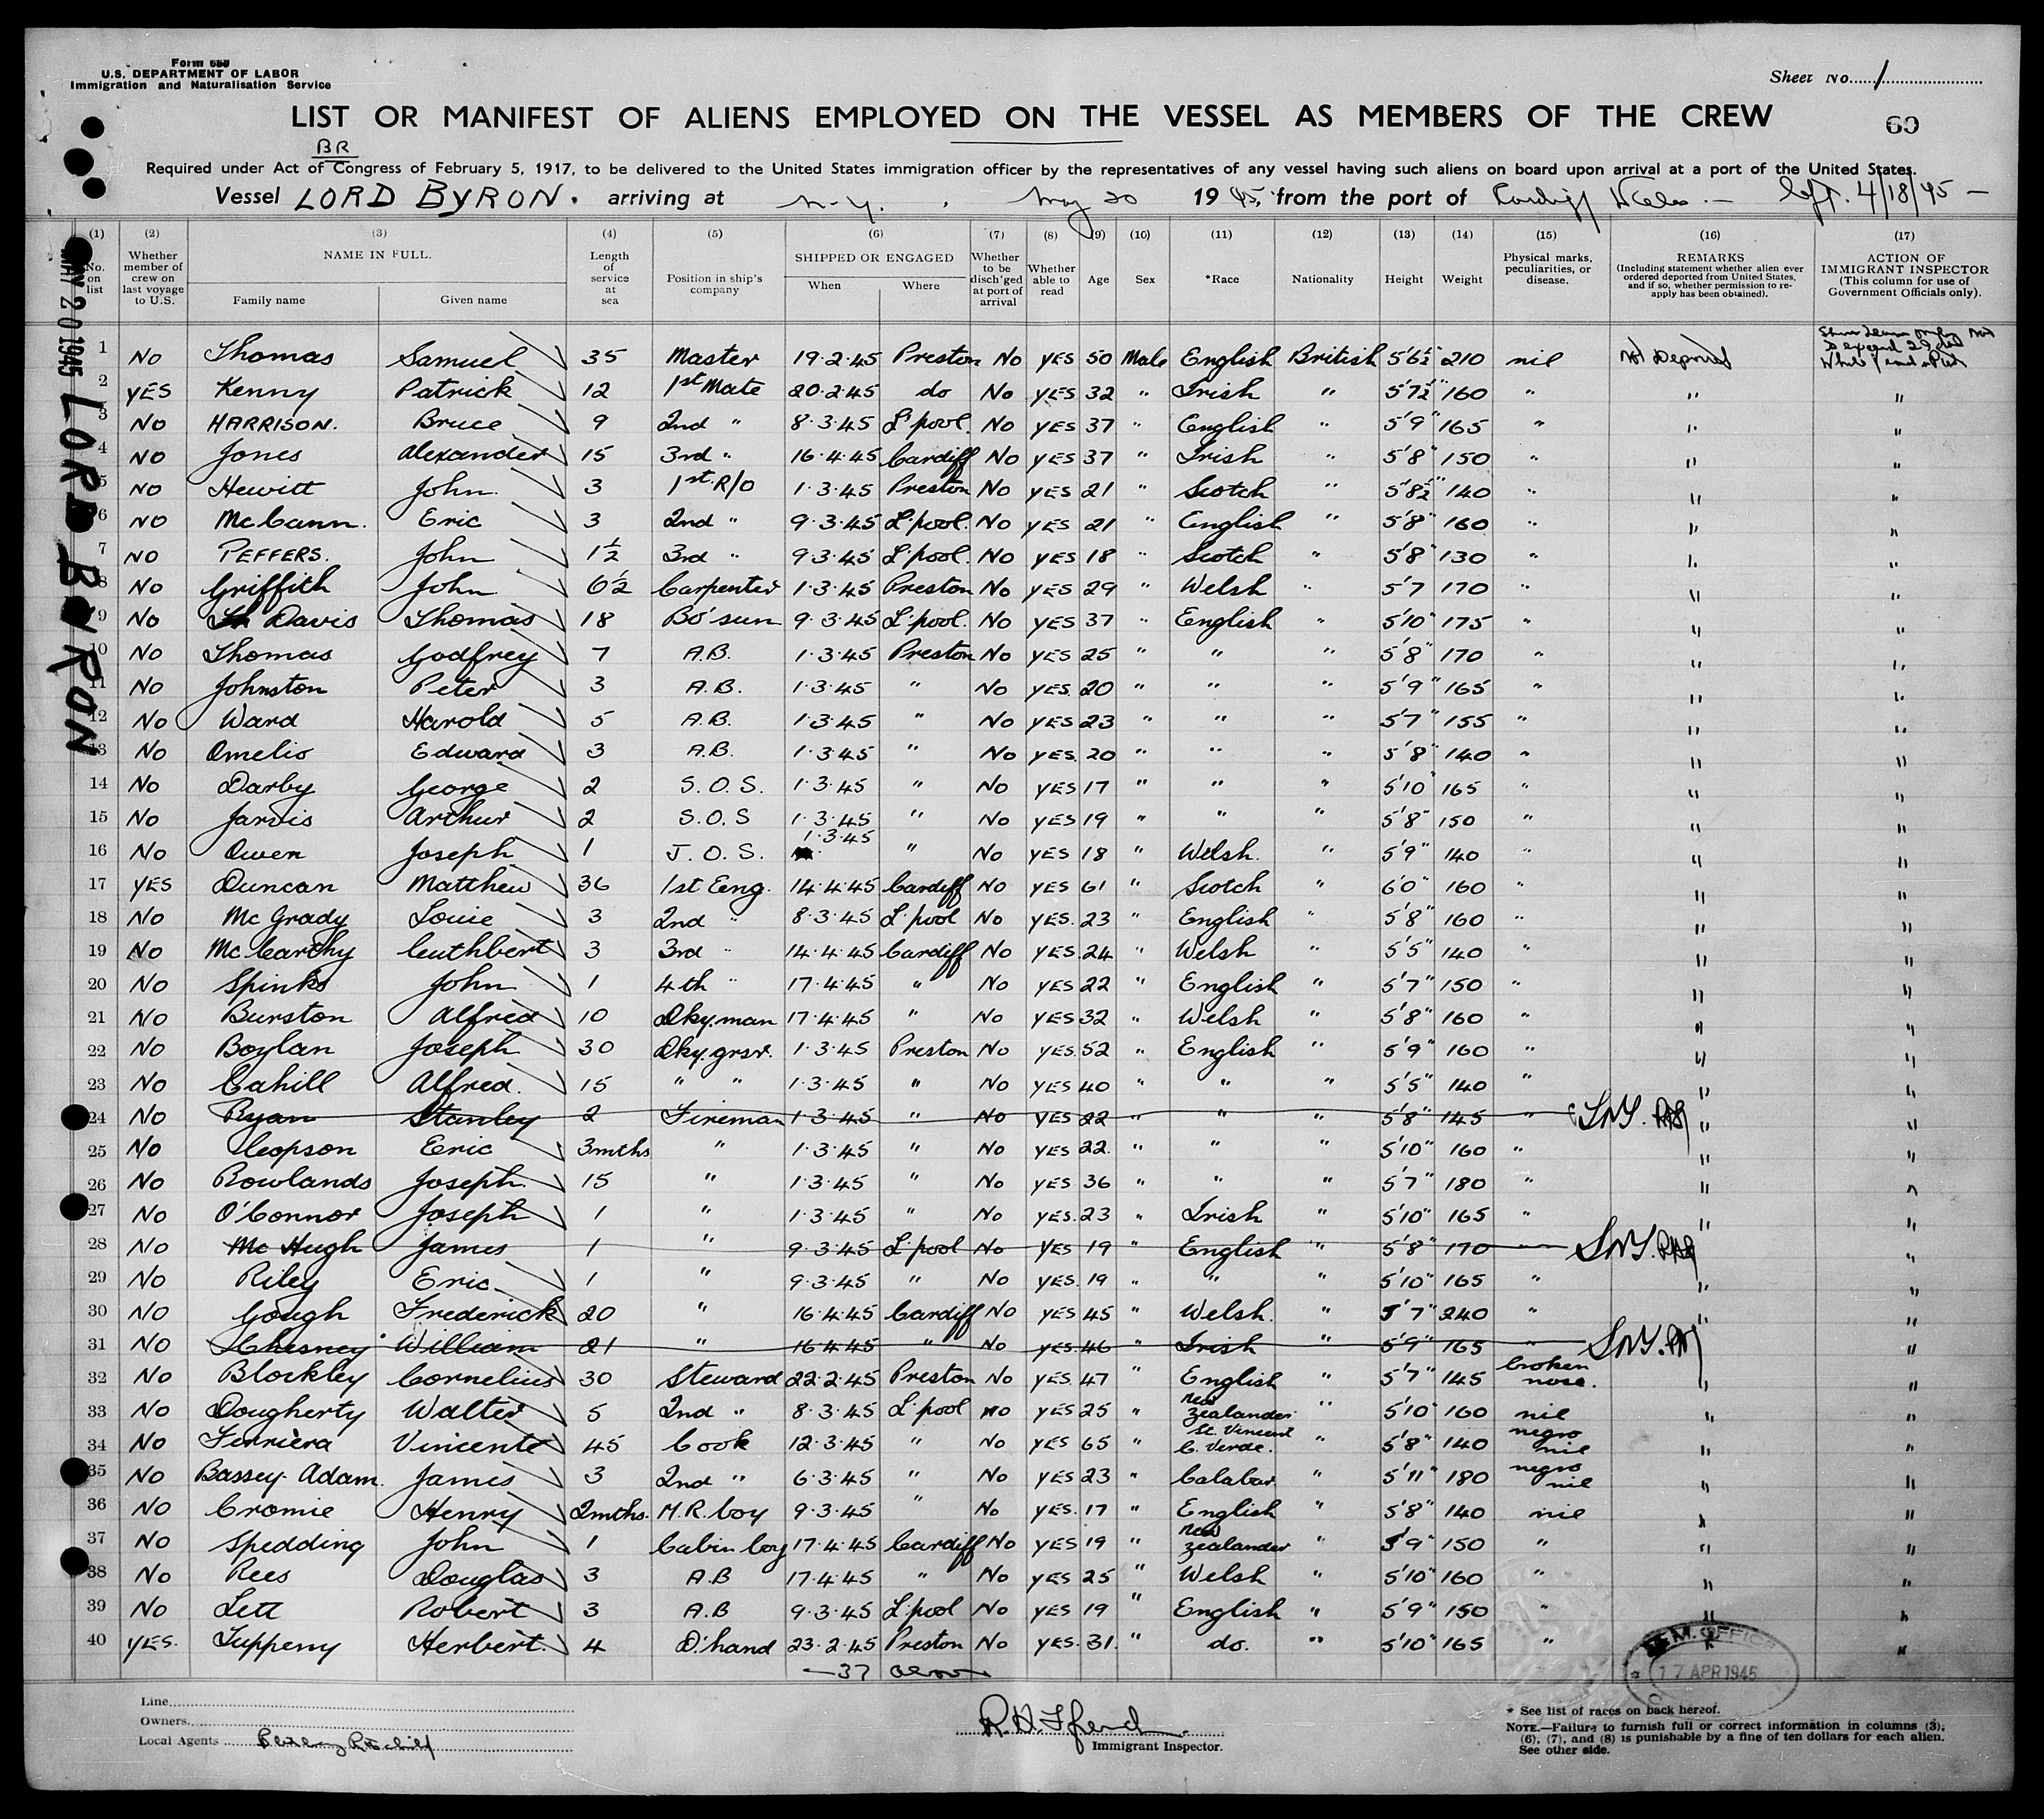 Form 689
U.S. DEPARTMENT OF LABOR
Immigration and Naturalisation Service
Sheet No. 1
LIST OR MANIFEST OF ALIENS EMPLOYED ON THE VESSEL AS MEMBERS OF THE CREW
60
BR
Required under Act of Congress of February 5, 1917, to be delivered to the United States immigration officer by the representatives of any vessel having such aliens on board upon arrival at a port of the United States.
Vessel LORD BYRON. arriving at N.Y., May 20 1945, from the port of Cardiff Wales - left 4/18/45 -
(1) (2) (3) (4) (5) (6) (7) (8) (9) (10) (11) (12) (13) (14) (15) (16) (17)
No. on list
Whether member of crew on last voyage to U.S.
NAME IN FULL.
Family name Given name
Length of service at sea
Position in ship's company
SHIPPED OR ENGAGED
When Where
Whether to be disch'ged at port of arrival
Whether able to read
Age
Sex
*Race
Nationality
Height
Weight
Physical marks, peculiarities, or disease.
REMARKS
(Including statement whether alien ever ordered deported from United States, and if so, whether permission to re-apply has been obtained).
ACTION OF IMMIGRANT INSPECTOR
(This column for use of Government Officials only).
MAY 20 1945 LORD BYRON
1 No Thomas Samuel 35 Master 19·2·45 Preston No YES 50 Male English British 5'6½ 210 nil
2 YES Kenny Patrick 12 1st Mate 20·2·45 do No YES 32 " Irish " 5'7½" 160 " " "
3 No HARRISON. Bruce 9 2nd " 8·3·45 L'pool. No YES 37 " English " 5'9" 165 " " "
4 No Jones Alexander 15 3rd " 16·4·45 Cardiff No YES 37 " Irish " 5'8" 150 " " "
5 No Hewitt John. 3 1st R/O 1·3·45 Preston No YES 21 " Scotch " 5'8½" 140 " " "
6 NO McCann. Eric 3 2nd " 9·3·45 L'pool. No YES 21 " English " 5'8" 160 " " "
7 NO PEFFERS. John 1½ 3rd " 9·3·45 L'pool. No YES 18 " Scotch " 5'8" 130 " " "
8 No Griffith John 6½ Carpenter 1·3·45 Preston No YES 29 " Welsh " 5'7 170 " " "
9 No Davis Thomas 18 Bo'sun 9·3·45 L'pool. No YES 37 " English " 5'10" 175 " " "
10 No Thomas Godfrey 7 A.B. 1·3·45 Preston No YES 25 " " " 5'8" 170 " " "
11 No Johnston Peter 3 A.B. 1·3·45 " No YES. 20 " " " 5'9" 165 " " "
12 No Ward Harold 5 A.B. 1·3·45 " No YES 23 " " " 5'7" 155 " " "
13 No Omelio Edward 3 A.B. 1·3·45 " No YES. 20 " " " 5'8" 140 " " "
14 No Darby George 2 S.O.S. 1·3·45 " No YES 17 " " " 5'10" 165 " " "
15 No Jarvis Arthur 2 S.O.S 1·3·45 " No YES 19 " " " 5'8" 150 " " "
16 No Owen Joseph 1 J.O.S. 1·3·45 " No YES 18 " Welsh. " 5'9" 140 " "
17 YES Duncan Matthew 36 1st Eng. 14·4·45 Cardiff No YES 61 " Scotch " 6'0" 160 " " "
18 No McGrady Louie 3 2nd " 8·3·45 L'pool No YES. 23 " English " 5'8" 160 " " "
19 No McCarthy Cuthbert 3 3rd " 14·4·45 Cardiff No YES. 24 " Welsh " 5'5" 140 " " "
20 No Spinks John 1 4th " 17·4·45 " No YES 22 " English " 5'7" 150 " " "
21 No Burston Alfred 10 Dky.man 17·4·45 " No YES 32 " Welsh " 5'8" 160 " " "
22 No Boylan Joseph 30 Dky.grsr. 1·3·45 Preston No YES. 52 " English " 5'9" 160 " " "
23 No Cahill Alfred. 15 " " 1·3·45 " No YES 40 " " " 5'5" 140 " " "
24 No Ryan Stanley 2 Fireman 1·3·45 " No YES 22 " " " 5'8" 145 " " "
25 No Cleopson Eric 3mths " 1·3·45 " No YES 22. " " " 5'10" 160 " " "
26 No Rowlands Joseph. 15 " 1·3·45 " No YES 36 " " " 5'7" 180 " " "
27 No O'Connor Joseph 1 " 1·3·45 " No YES. 23 " Irish " 5'10" 165 " " "
28 No McHugh James 1 " 9·3·45 L'pool No YES 19 " English " 5'8" 170 " "
29 No Riley Eric 1 " 9·3·45 " No YES. 19 " " " 5'10" 165 " " "
30 NO Gough Frederick 20 " 16·4·45 Cardiff No YES 45 " Welsh. " 5'7" 240 " " "
31 NO Chesney William 21 " 16·4·45 " No YES. 46 " Irish " 5'9" 165 " "
32 No Blockley Cornelius 30 Steward 22·2·45 Preston No YES. 47 " English " 5'7" 145 broken nose. " "
33 No Dougherty Walter 5 2nd " 8·3·45 L'pool No YES 25 " New Zealander " 5'10" 160 nil " "
34 No Ferriera Vincente 45 Cook 12·3·45 " No YES 65 " St. Vincent C. Verde. " 5'8" 140 negro nil " "
35 No Bassey-Adam. James 3 2nd " 6·3·45 " No YES. 23 " Calabar " 5'11" 180 negro nil " "
36 No Cromie Henry 2mths. M.R. boy 9·3·45 " No YES. 17 " English " 5'8" 140 nil " "
37 No Spedding John 1 Cabin boy 17·4·45 Cardiff No YES 19 " New Zealander " 5'9" 150 " " "
38 No Rees Douglas 3 A.B 17·4·45 " No YES 25 " Welsh " 5'10" 160 " " "
39 No Lett Robert 3 A.B 9·3·45 L'pool No YES 19 " English " 5'9" 150 " " "
40 YES. Tuppeny Herbert. 4 D'hand 23·2·45 Preston No YES. 31. " do. " 5'10" 165 " " "
—37
17 APR 1945
Line
Owners
Local Agents
Immigrant Inspector.
* See list of races on back hereof.
NOTE.—Failure to furnish full or correct information in columns (3), (6), (7), and (8) is punishable by a fine of ten dollars for each alien. See other side.